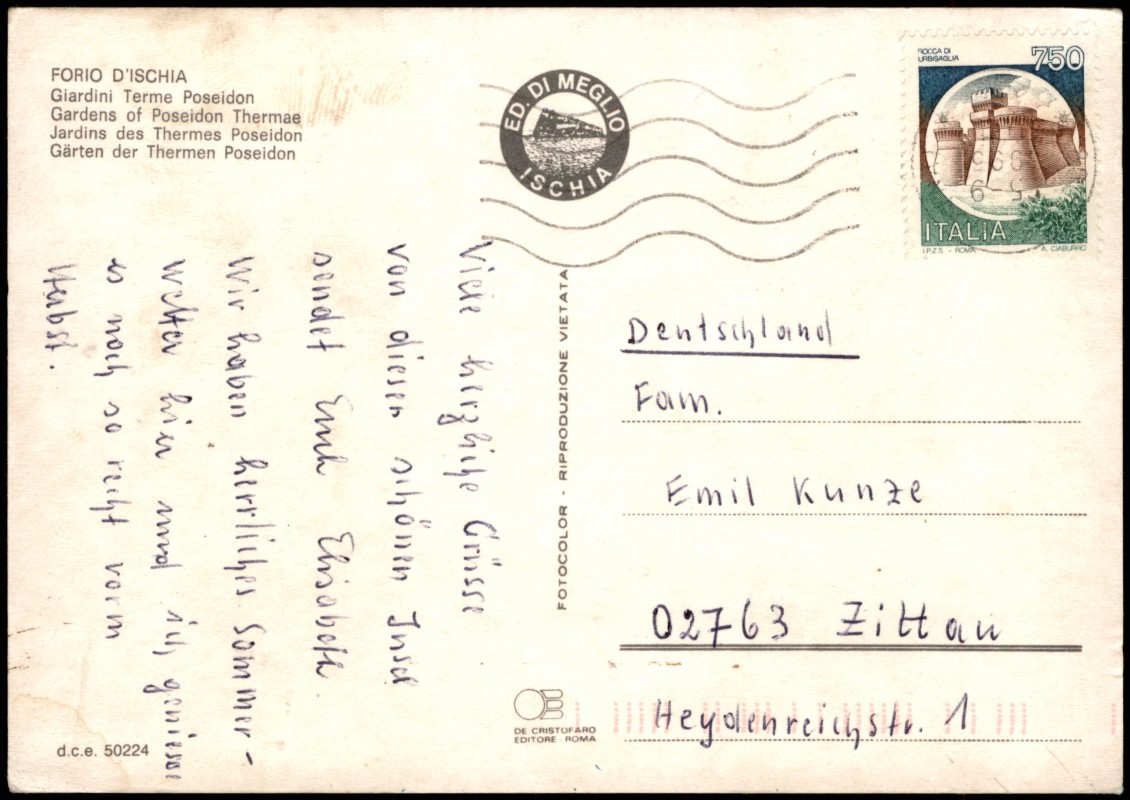 FORIO D'ISCHIA
Giardini Terme Poseidon
Gardens of Poseidon Thermae
Jardins des Thermes Poseidon
Gärten der Thermen Poseidon
ED. DI MEGLIO
ISCHIA
ROCCA DI
URBISAGLIA
750
ITALIA
I.P.Z.S. - ROMA
A. CIABURRO
Viele herzliche Grüsse
von dieser schönen Insel
sendet Euch Elisabeth.
Wir haben herrliches Sommer-
wetter hier und ich geniesse
es noch so recht vorm
Herbst.
FOTOCOLOR - RIPRODUZIONE VIETATA
Deutschland
Fam.
Emil Kunze
02763 Zittau
Heydenreichstr. 1
DE CRISTOFARO
EDITORE - ROMA
d.c.e. 50224